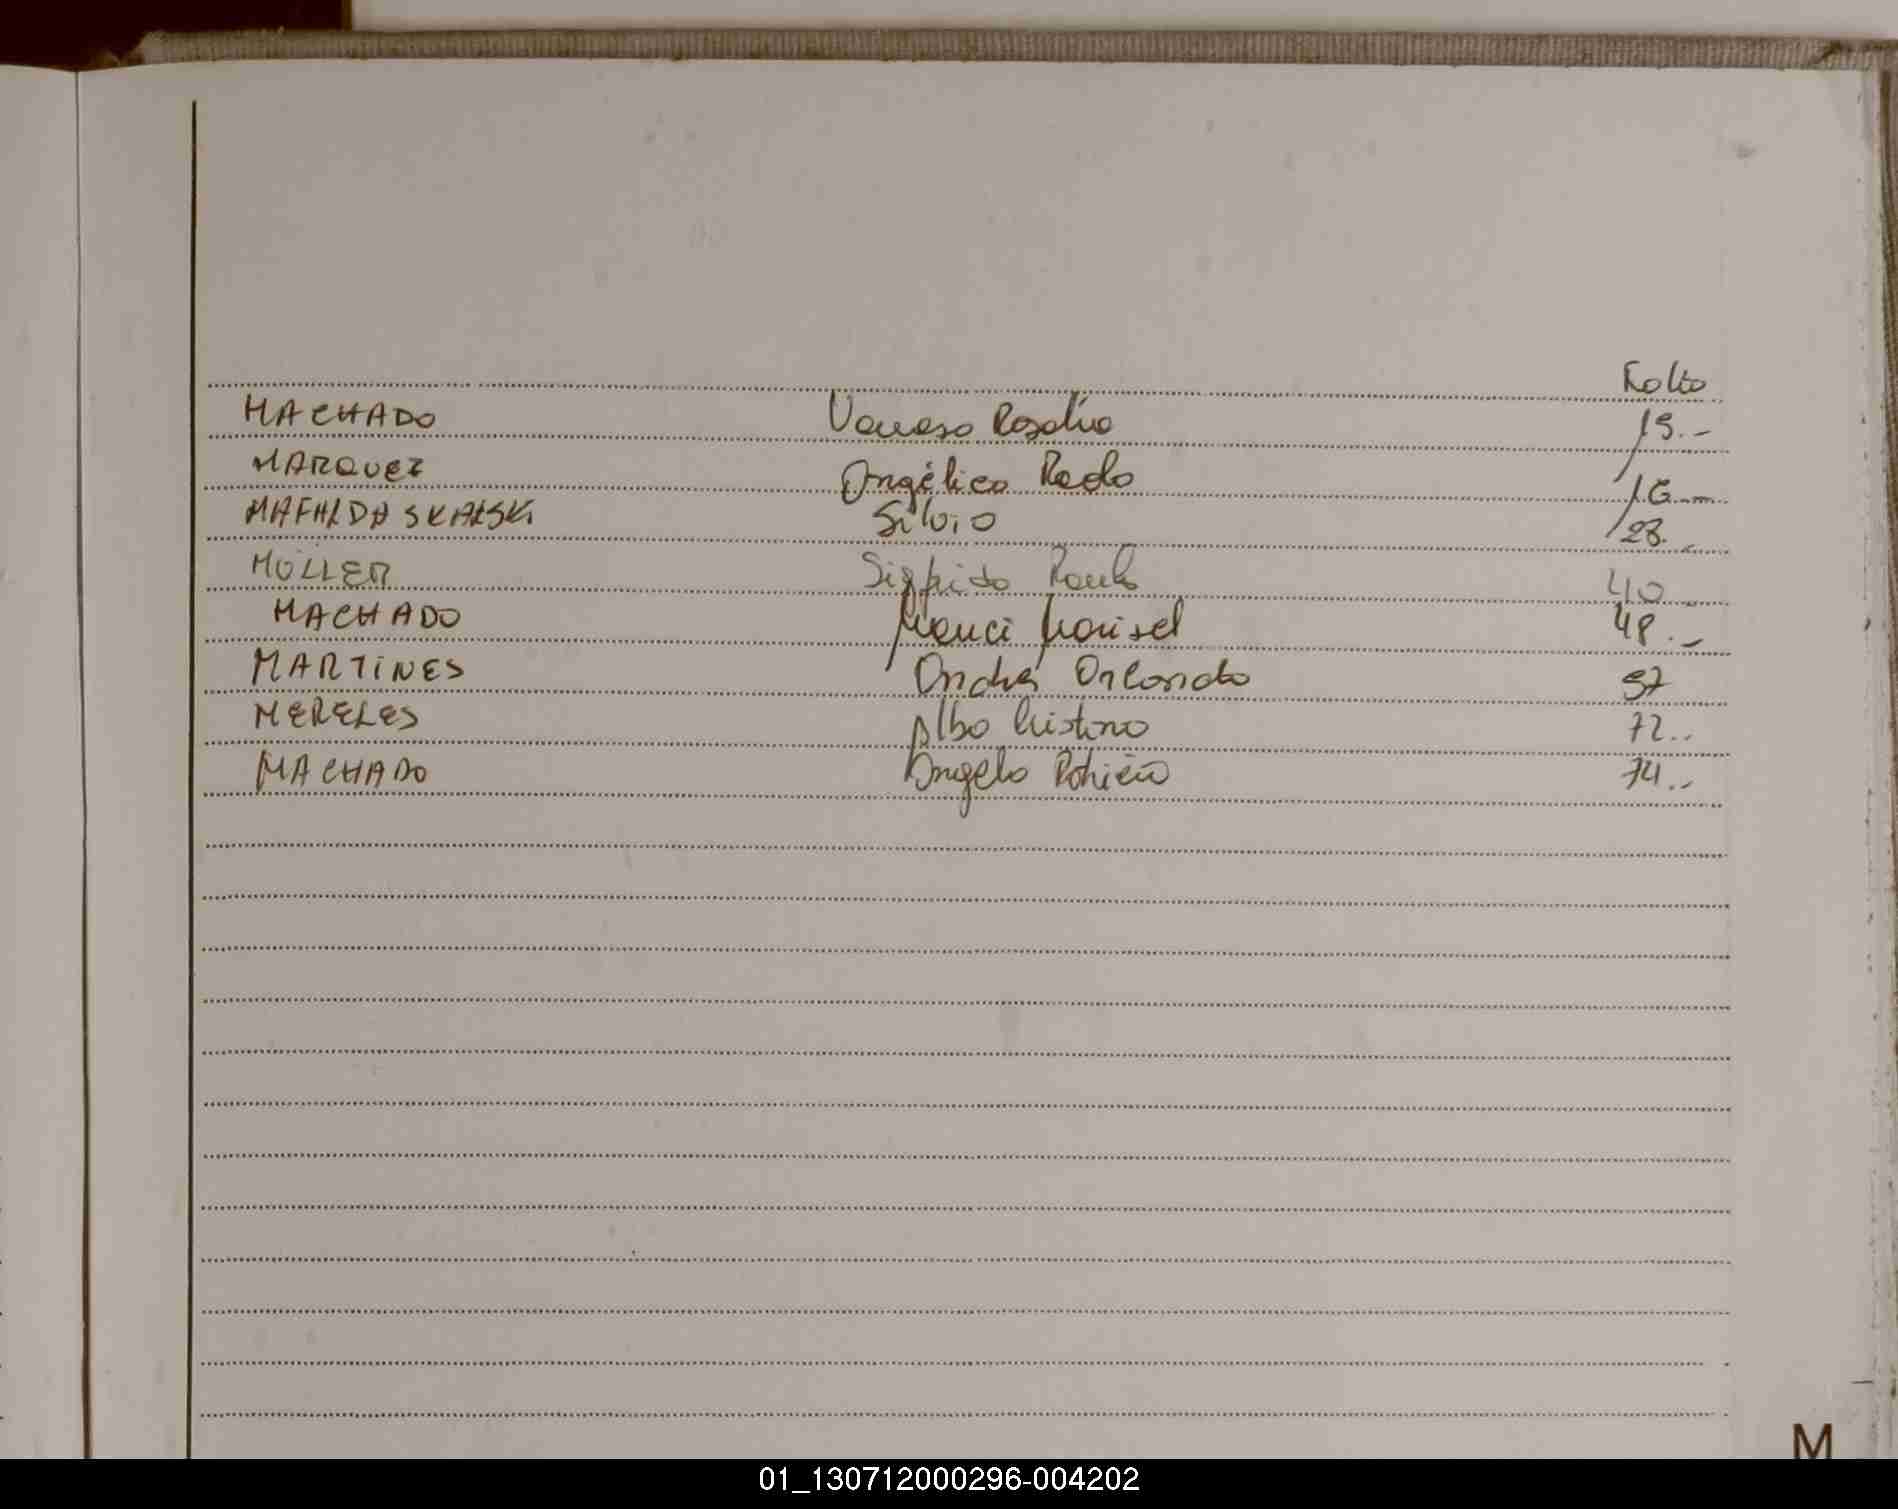 Folio
MACHADO Vanesa Rosalia 15.-
MARQUEZ Angélica Paola 16.-
MAFALDA SKALSKI Silvio 28.-
MÜLLER Sigfrido Paulo 40.-
MACHADO Nanci Marisel 48.-
MARTINES André Orlando 57
MERELES Alba Cristina 72..
MACHADO Angela 74..
M
01_130712000296-004202